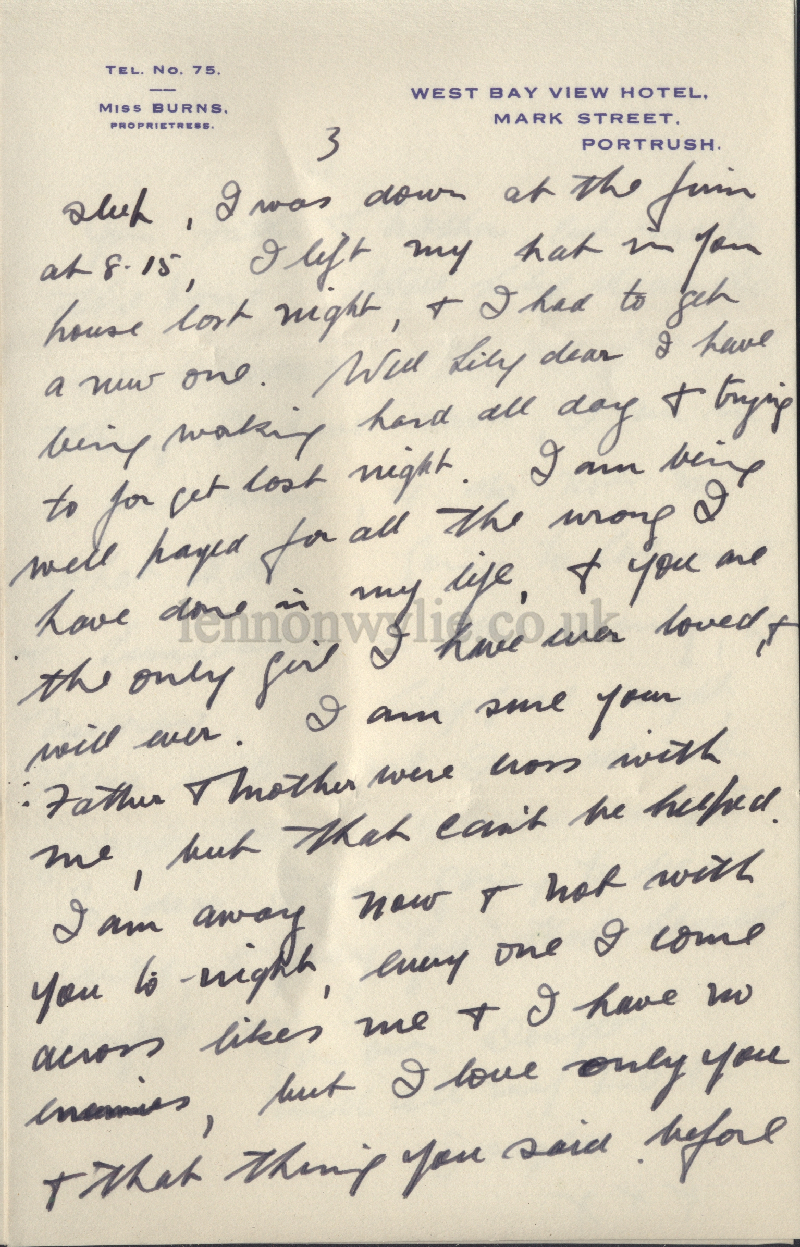 TEL. NO. 75.
MISS BURNS,
PROPRIETRESS.
WEST BAY VIEW HOTEL,
MARK STREET,
PORTRUSH.
3
sleep, I was down at the firm
at 8.15, I left my hat in your
house last night, & I had to get
a new one. Well Lily dear I have
being working hard all day & trying
to for get last night. I am being
well payed for all the wrong I
have done in my life, & you are
lennonwylie.co.uk
the only girl I have ever loved, &
will ever. I am sure your
Father & Mother were cross with
me, but that can't be helped.
I am away now & not with
you to-night, every one I come
across likes me & I have no
enemies, but I love only you
& that thing you said before